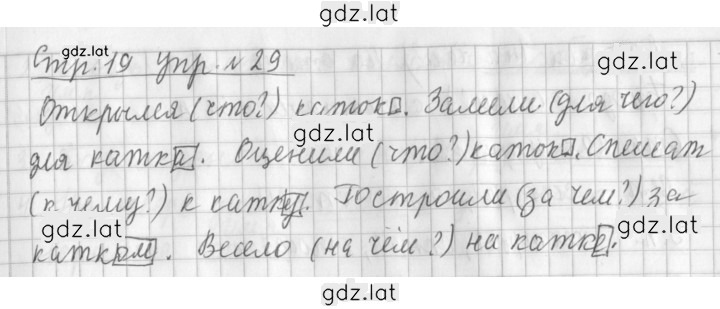 gdz.lat
Стр. 19 упр. № 29
gdz.lat
gdz.lat
Открылся (что?) каток. Залили (для чего?)
gdz.lat
для катка. Оценили (что?) каток. Спешат
(к чему?) к катку. Построили (за чем?) за
gdz.lat
gdz.lat
катком. Весело (на чём?) на катке.
gdz.lat